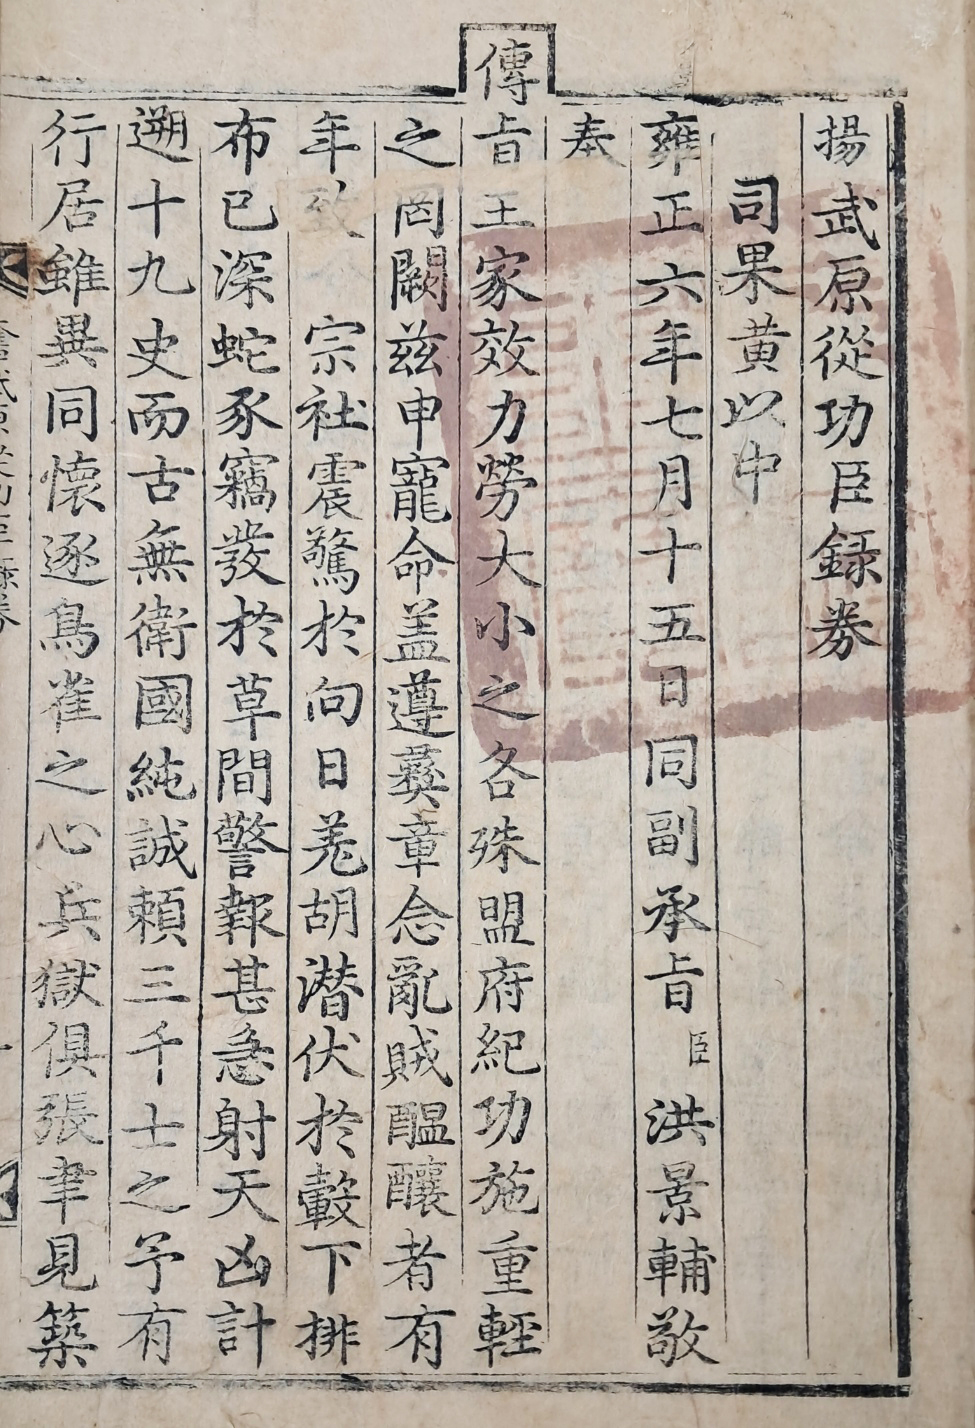 揚武原從功臣錄券
司果黃以中
雍正六年七月十五日同副承旨臣洪景輔敬
奉
傳旨王家效力勞大小之各殊盟府紀功施重輕
之罔闕茲申寵命盖遵彛章念亂賊醞釀者有
年致宗社震驚於向日羗胡潜伏於轂下排
布已深蛇豕竊發於草間警報甚急射天凶計
遡十九史而古無衛國純誠賴三千士之予有
行居雖異同懷逐鳥雀之心兵獄俱張聿見築